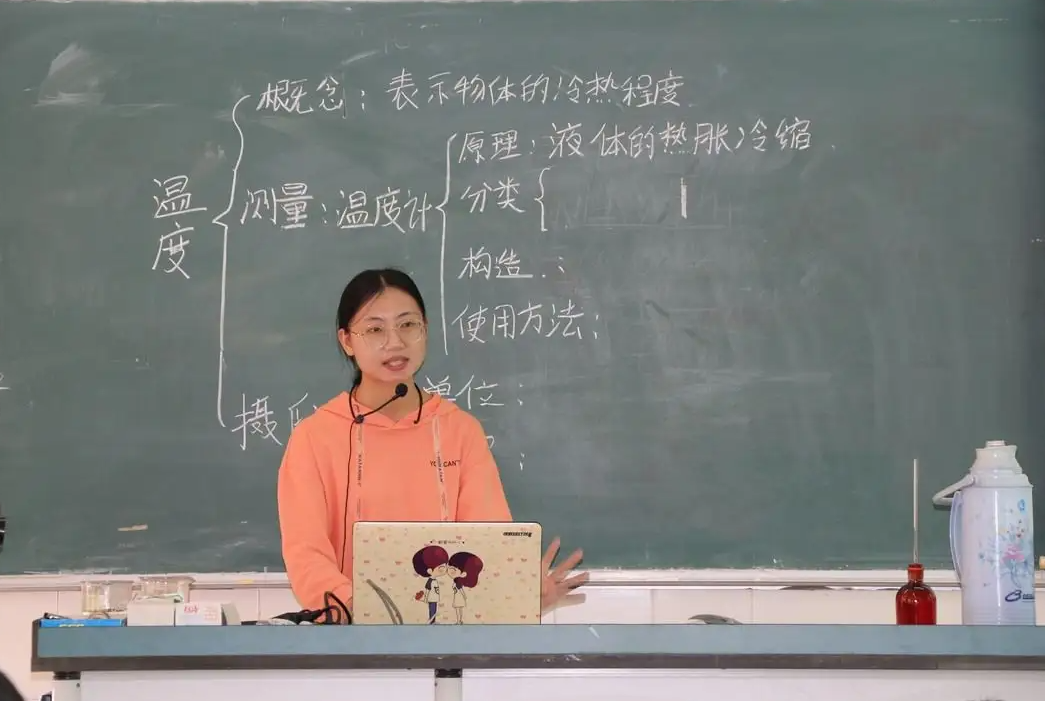 概念：表示物体的冷热程度.
原理：液体的热胀冷缩.
温度
测量：温度计
分类
构造：
使用方法：
摄氏
单位：
：
YOU CAN'T